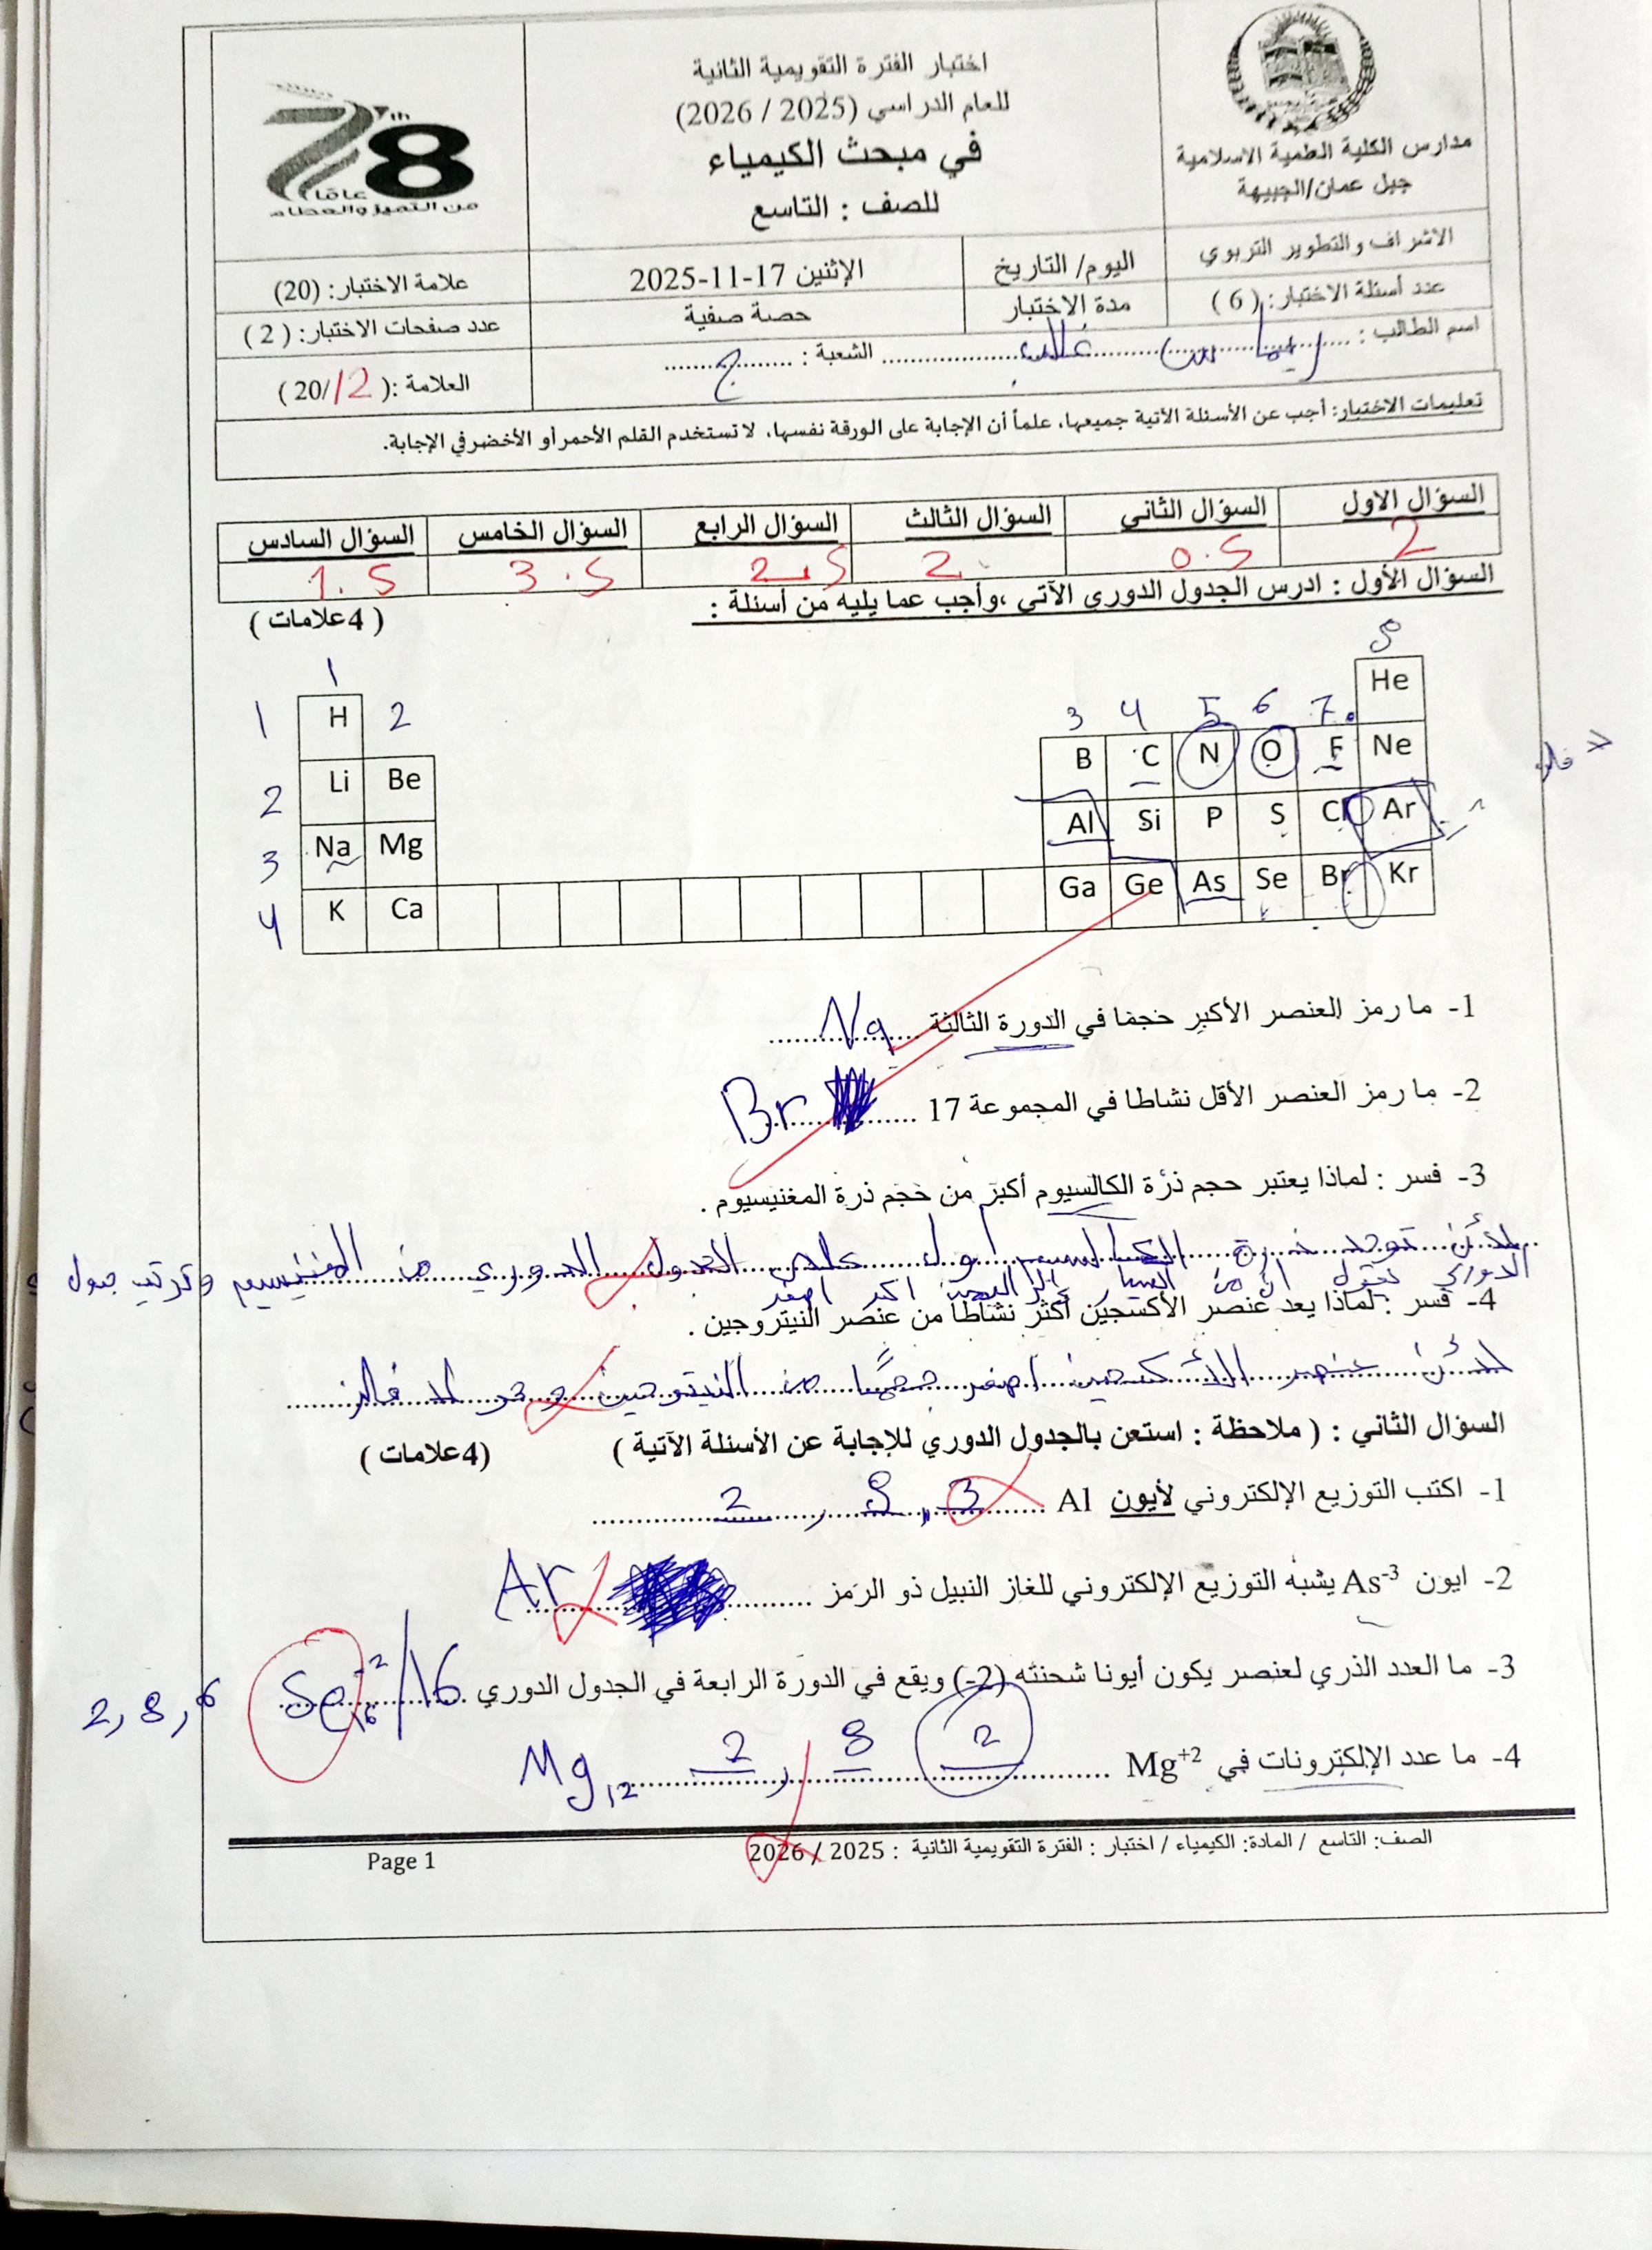 مدارس الكلية العلمية الاسلامية
جبل عمان/الجبيهة
اختبار الفترة التقويمية الثانية
للعام الدراسي (2025 / 2026)
في مبحث الكيمياء
للصف : التاسع
78 th
عامًا
من التميز والعطاء
الاشراف والتطوير التربوي
اليوم/ التاريخ
الإثنين 17-11-2025
علامة الاختبار: (20)
عدد أسئلة الاختبار: ( 6 )
مدة الاختبار
حصة صفية
عدد صفحات الاختبار: ( 2 )
اسم الطالب : ........ الشعبة : ........ ج
العلامة :( 12/20 )
تعليمات الاختبار: أجب عن الأسئلة الأتية جميعها، علماً أن الإجابة على الورقة نفسها، لا تستخدم القلم الأحمر أو الأخضر في الإجابة.
السؤال الاول السؤال الثاني السؤال الثالث السؤال الرابع السؤال الخامس السؤال السادس
2 0.5 2 2.5 3.5 1.5
السؤال الأول : ادرس الجدول الدوري الآتي ،وأجب عما يليه من أسئلة : ( 4علامات )
1 8
He
1 H 2 3 4 5 6 7
B C N O F Ne
2 Li Be
Al Si P S Cl Ar
3 Na Mg
Ga Ge As Se Br Kr
4 K Ca
1- ما رمز العنصر الأكبر حجما في الدورة الثالثة Na
2- ما رمز العنصر الأقل نشاطا في المجموعة 17 Br
3- فسر : لماذا يعتبر حجم ذرّة الكالسيوم أكبر من حجم ذرة المغنيسيوم .
توجد ذرة الكالسيوم على الجدول الدوري من المغنيسيوم
4- فسر : لماذا يعد عنصر الأكسجين أكثر نشاطا من عنصر النيتروجين .
عنصر الأكسجين اصغر حجمًا من النيتروجين
السؤال الثاني : ( ملاحظة : استعن بالجدول الدوري للإجابة عن الأسئلة الآتية ) (4علامات )
1- اكتب التوزيع الإلكتروني لأيون Al 2 , 8 , 3
2- ايون As-3 يشبه التوزيع الإلكتروني للغاز النبيل ذو الرمز Ar
3- ما العدد الذري لعنصر يكون أيونا شحنته (2-) ويقع في الدورة الرابعة في الجدول الدوري 16 / Se-2 16 2, 8, 6
4- ما عدد الإلكترونات في Mg+2 Mg 12 2 , 8 2
الصف: التاسع / المادة: الكيمياء / اختبار : الفترة التقويمية الثانية : 2025 / 2026
Page 1